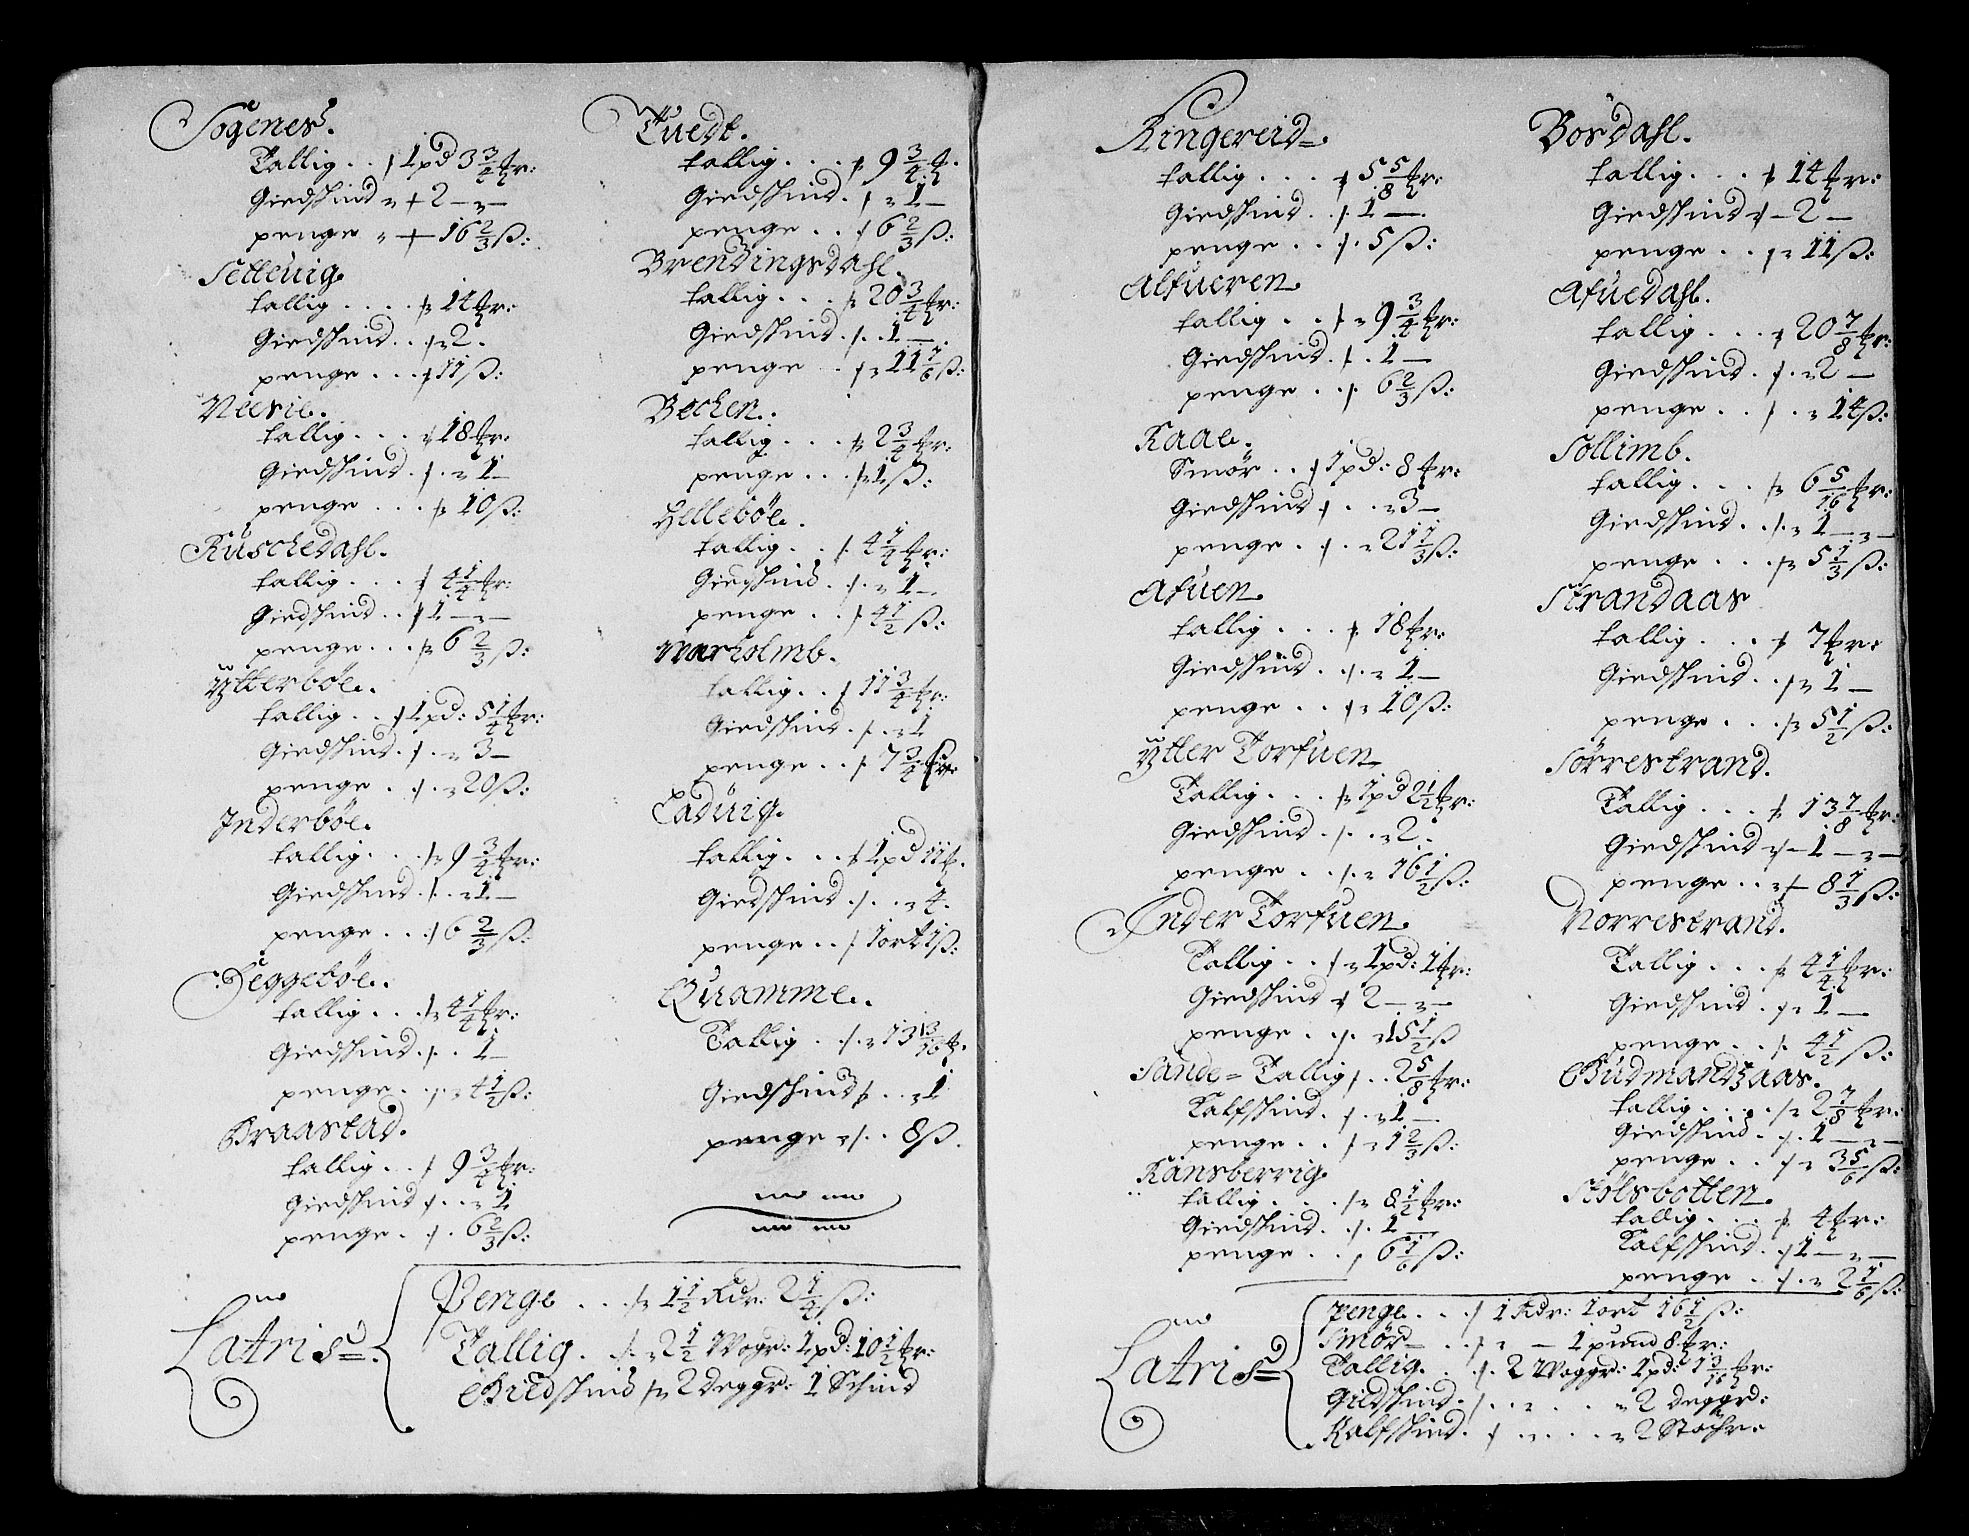 Sogenes.
Tallig . . / 1 pd 3 3/4 tr:
Giedshind „ + 2 — „ —
penge „ + 16 2/3 ß:
Settevig
tallig . . . . /„ 14 tr:
Giedshind . . /„ 2 .
penge . . . / 11 ß:
Veesie.
tallig . . . / 18 tr:
Giedshind . /. „ 1 —
penge . . . /„ 10 ß:
Kuschedahl.
tallig . . . / 4 1/4 tr:
Giedshind . . / 1 — „ —
penge . . . /„ 6 2/3 ß:
Ÿtterböe.
tallig . . / 1 pd: 5 1/4 tr:
Giedshind . /. „ 3 —
penge . /. „ 20 ß:
Inderböe.
tallig . . . /„ 9 3/4 tr:
Giedshind . /. . „ 1 —
penge . . . / 6 2/3 ß:
Deggeböe.
tallig . . . /„ 4 1/4 tr:
Giedshind . /. . 1 —
penge . . /„ 4 1/2 ß:
Braastad.
tallig . . / 9 3/4 tr:
Giedshind /. . „ 1
penge . /. . 6 2/3 ß:
Tuedt.
tallig . . . /„ 9 3/4 t.
Giedshind . / „ 1 —
penge . . / 6 2/3 ß:
Brendingsdahl.
tallig . . . /„ 20 3/4 tr:
Giedshind . /. . 1 —
penge . /„ 11 1/6 ß:
Bechen.
tallig . . . /„ 2 3/4 tr:
penge . . . /„ 1 ß:
Helleböe.
tallig . . /. 4 1/4 tr:
Giedshind . /. „ 1 —.
penge . . /. 4 1/2 ß:
Warholmb.
tallig . . / 11 3/4 tr:
Giedshind . /. . „ 1
penge . . /. 7 3/4 ß
Laduig.
tallig . . . / 1 pd 11 t.
Giedshind . /. . „ 4.
penge . . /. 1 ort 1 ß:
Quamme.
Tallig . /. „ 13 13/16 t.
Giedshind /. . . „ 1
penge „ /. . 8 ß.
Penge . . . /„ 1 1/2 Rdr: 2 1/4 ß:
Latris. Tallig . /. „ 2 1/2 Wogr: 1 pd: 10 1/2 tr:
Giedshind /„ 2 Deggr: 1 Schind
Ringereid.
tallig . . . / 5 5/8 tr:
Giedshind . /. 1 —.
penge . . /. 5 ß:
Alfueren.
tallig . . /. „ 9 3/4 tr:
Giedshind . /. . 1 —
penge . . /. 6 2/3 ß:
Kaae.
Smör . . / 1 pd: 8 tr:
Giedshind / . . „ 3 —
penge . /. „ 21 1/3 ß:
Afuen.
tallig . . . / 18 tr:
Giedshind . /. . „ 1 —
penge . . / „ 10 ß:
Ÿtter Torfuen
Tallig . . . /„ 1 pd 2 1/2 tr:
Giedshind . /. . „ 2 .
penge . . /. „ 16 1/2 ß:
Inder Torfuen.
Tallig . . / „ 1 pd: 1 tr:
Giedshind / 2 — „ —
penge . /. „ 15 1/2 ß
Sande = Tallig /. . 2 5/8 tr:
Kalfshind . /. „ 1 —
penge . . /. „ 1 2/3 ß:
Kansberrig.
tallig . . . . /„ 8 1/2 tr:
Giedshind . . /. 1 —
penge . . , 6 1/6 ß:
Bosdahl.
tallig . . . / 14 tr:
Giedshind / — 2 —
penge . . /„ 11 ß:
Afuedahl.
tallig . . . / 20 7/8 tr:
Giedshind . /. „ 2 —
penge . . /. . „ 14 ß:
Sollimb.
tallig . . . /„ 6 5/16 tr:
Giedshind . . /. „ 1 — „ —
penge . . . /„ 5 1/3 ß:
Strandaas
tallig . . . / 7 tr:
Giedshind . . /„ 1 —
penge . . . /„ 5 1/2 ß:
Sörrestrand.
Tallig . . . / 13 7/8 tr:
Giedshind „ — 1 — „ —
penge . . „ + 8 1/3 ß:
Norrestrand.
Tallig . . . /„ 4 1/4 tr:
Giedshind . /„ 1 —
penge . . /. 4 1/2 ß:
Gudmandsaas.
tallig . . . . /„ 2 7/8 tr:
Giedshind . /. . 1 — „ —
penge . . /. „ 3 5/6 ß:
Stölsbotten.
tallig . . . /. 4 tr:
Kalfshind . / 1 — „ —
penge . . /. . „ 2 1/6 ß:
penge . . . / 1 Rdr: 1 ort 16 1/2 ß:
Smör — . . /. „ — 1 pund 8 tr:
Latris Tallig . . . /. 2 Woggr: 1 pd: 1 3/16 tr:
Giedshind . /. . „ . . . „ 2 Deggrd:
Kalfshind . / . „ . . . „ 2 Stöchr